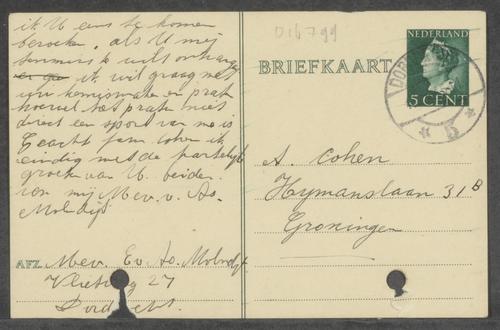 ik U eens te komen
bezoeken, als U mij
tenminste wilt ontvangen
ik wil graag met
U kennismaken en praten
hoewel het praten niet
direct een sport van me is
Geacht fam. Cohen ik
eindig met de hartelijke
groeten van U beiden.
van mij Mev. v. As.
Molndijk
AFZ. Mev. E v. As. Molndijk
27
Dordrecht.
D16799
BRIEFKAART
NEDERLAND
5 CENT
DOR
5
A. Cohen
Hymanslaan 31B
Groningen